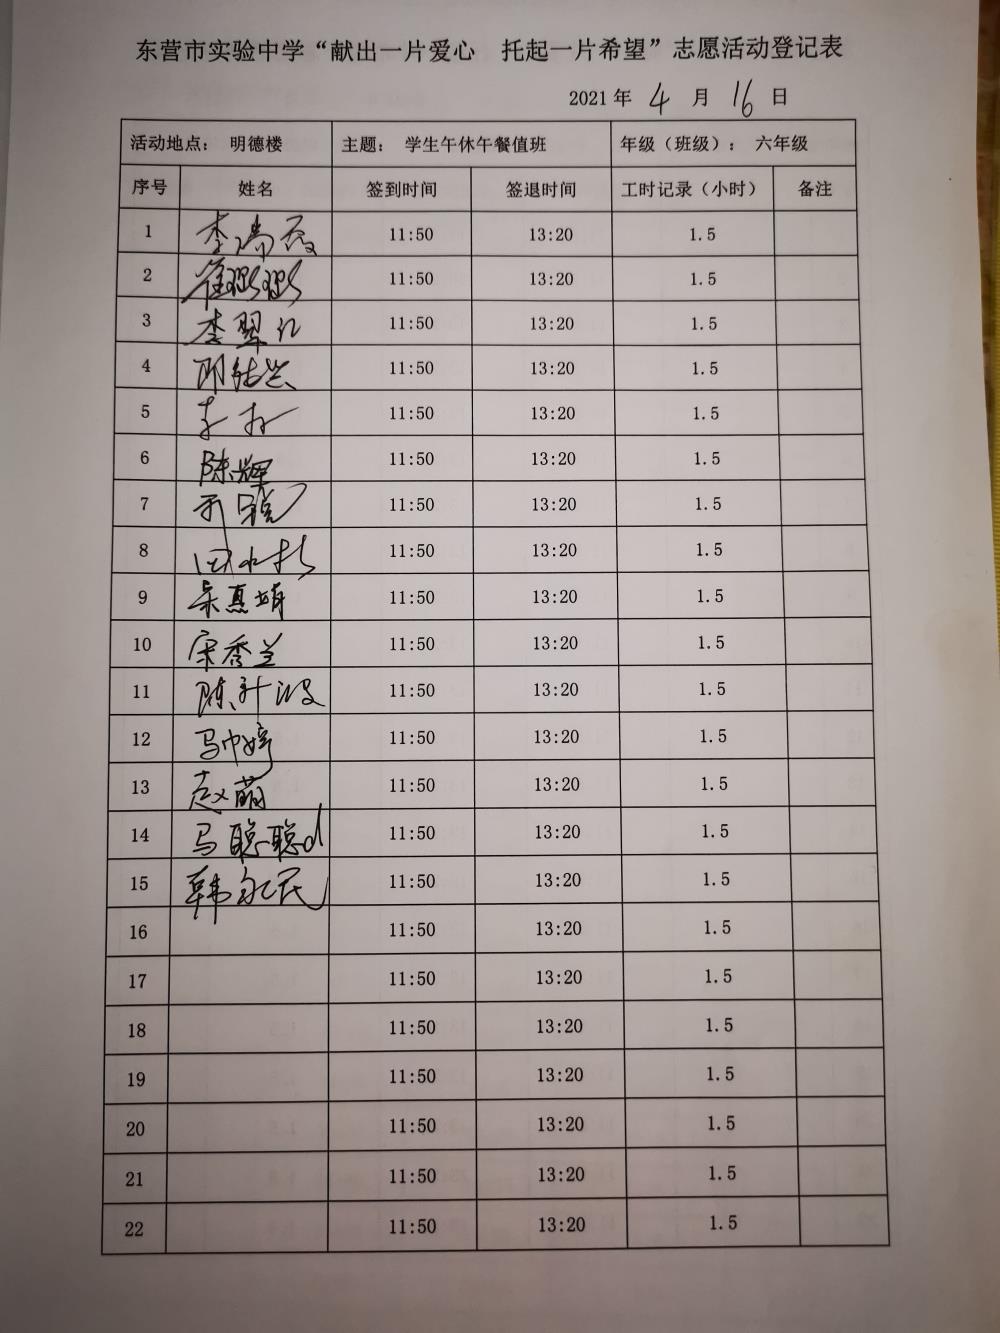 东营市实验中学“献出一片爱心 托起一片希望”志愿活动登记表
2021年 4 月 16 日
活动地点： 明德楼 主题： 学生午休午餐值班 年级（班级）： 六年级
序号 姓名 签到时间 签退时间 工时记录（小时） 备注
1 李瑞霞 11:50 13:20 1.5
2 11:50 13:20 1.5
3 李翠红 11:50 13:20 1.5
4 11:50 13:20 1.5
5 11:50 13:20 1.5
6 陈辉 11:50 13:20 1.5
7 11:50 13:20 1.5
8 11:50 13:20 1.5
9 11:50 13:20 1.5
10 宋秀兰 11:50 13:20 1.5
11 11:50 13:20 1.5
12 11:50 13:20 1.5
13 赵萌 11:50 13:20 1.5
14 马聪聪 11:50 13:20 1.5
15 11:50 13:20 1.5
16 11:50 13:20 1.5
17 11:50 13:20 1.5
18 11:50 13:20 1.5
19 11:50 13:20 1.5
20 11:50 13:20 1.5
21 11:50 13:20 1.5
22 11:50 13:20 1.5